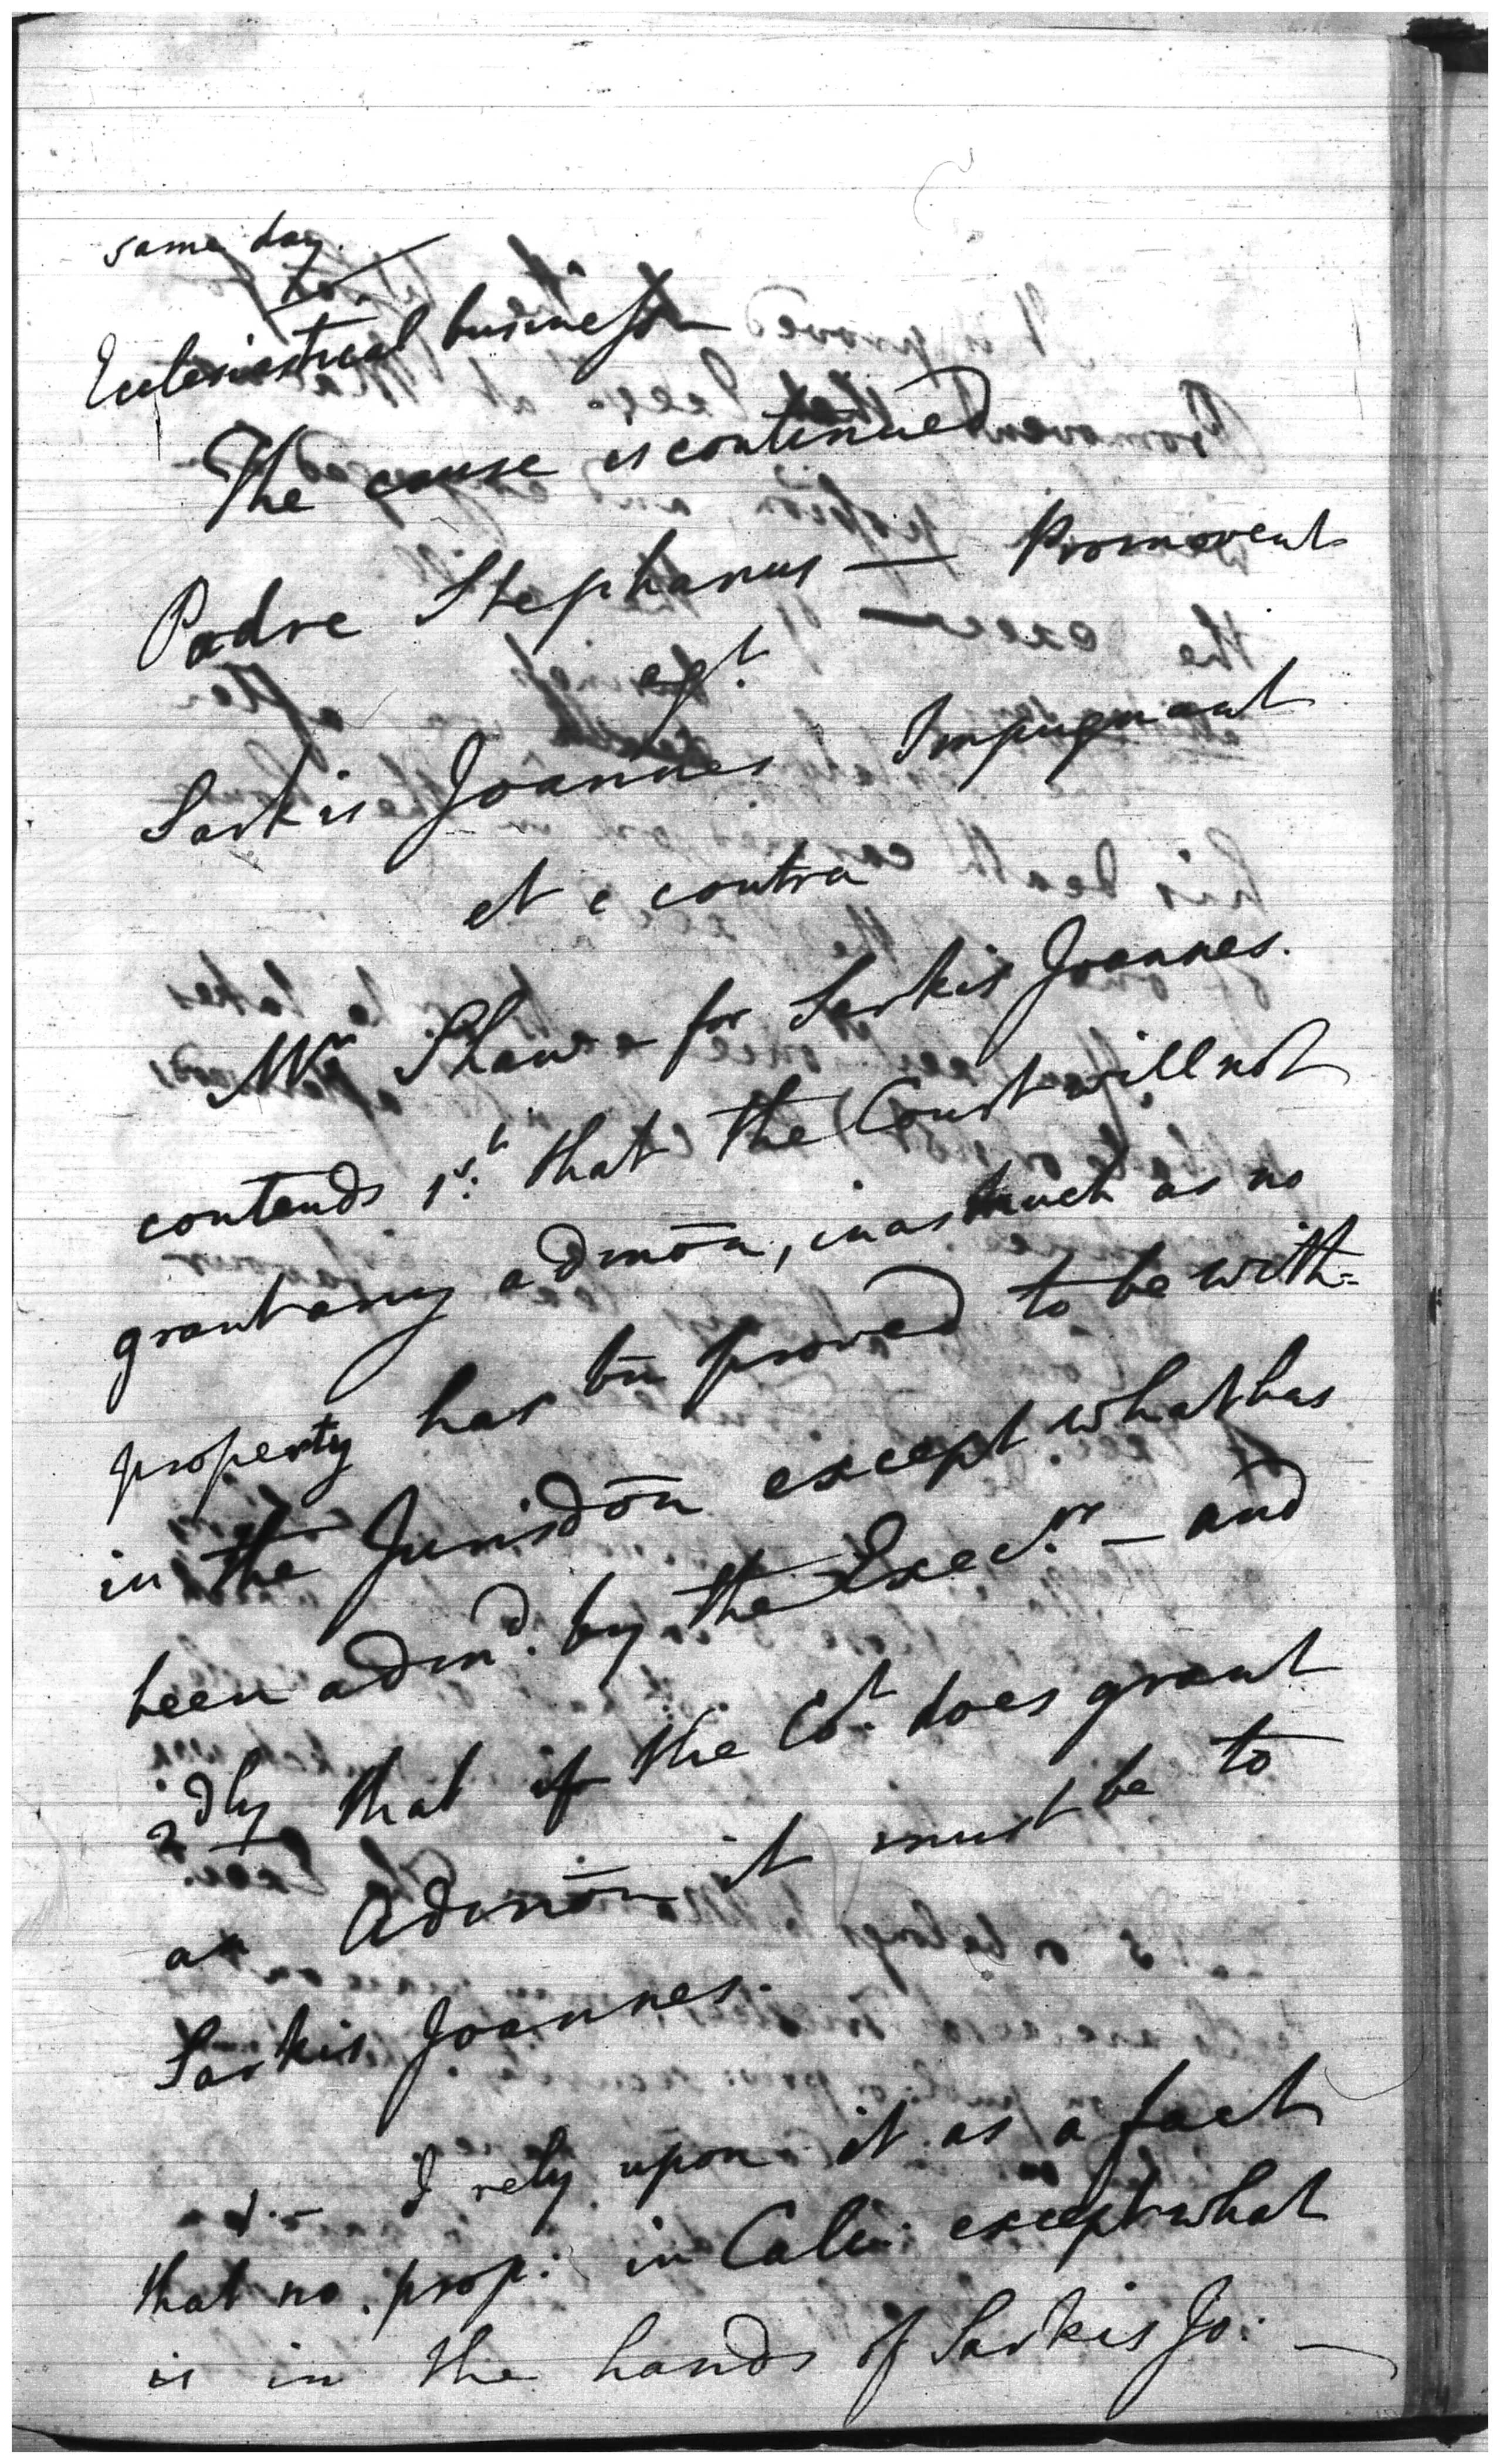 same day.
to.
Ecclesiastical business
The cause is continued
Padre Stephanus — Promovent
agt.
Sarkis Joannes Impugnant
et e contra
Mr Shawe for Sarkis Joannes.
contends 1st: that the Court will not
grant any admōn, inasmuch as no
property has bn proved to be with=
in the Jurisdōn except what has
been admd. by the Execr. — and
2dly that if the Ct. does grant
an Admōn it must be to
Sarkis Joannes.
1. — I rely upon it as a fact
that no prop: in Calu: except what
is in the hands of Sarkis Jo: —